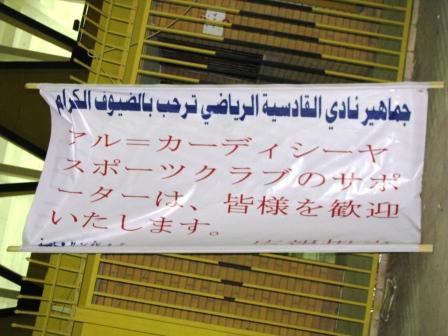 جماهير نادي القادسية الرياضي ترحب بالضيوف الكرام
アル＝カーディシーヤ
スポーツクラブのサポ
ーターは、皆様を歓迎
いたします。